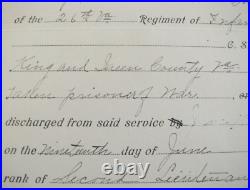 of the 26th Va Regiment of Infan
C.S.
King and Queen County Va
Taken prisoner of War.
discharged from said service
on the Nineteenth day of June
rank of Second Lieutenan